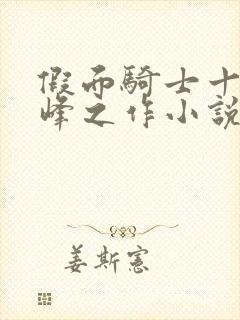 假面騎士十
峰之作小說
姜斯憲